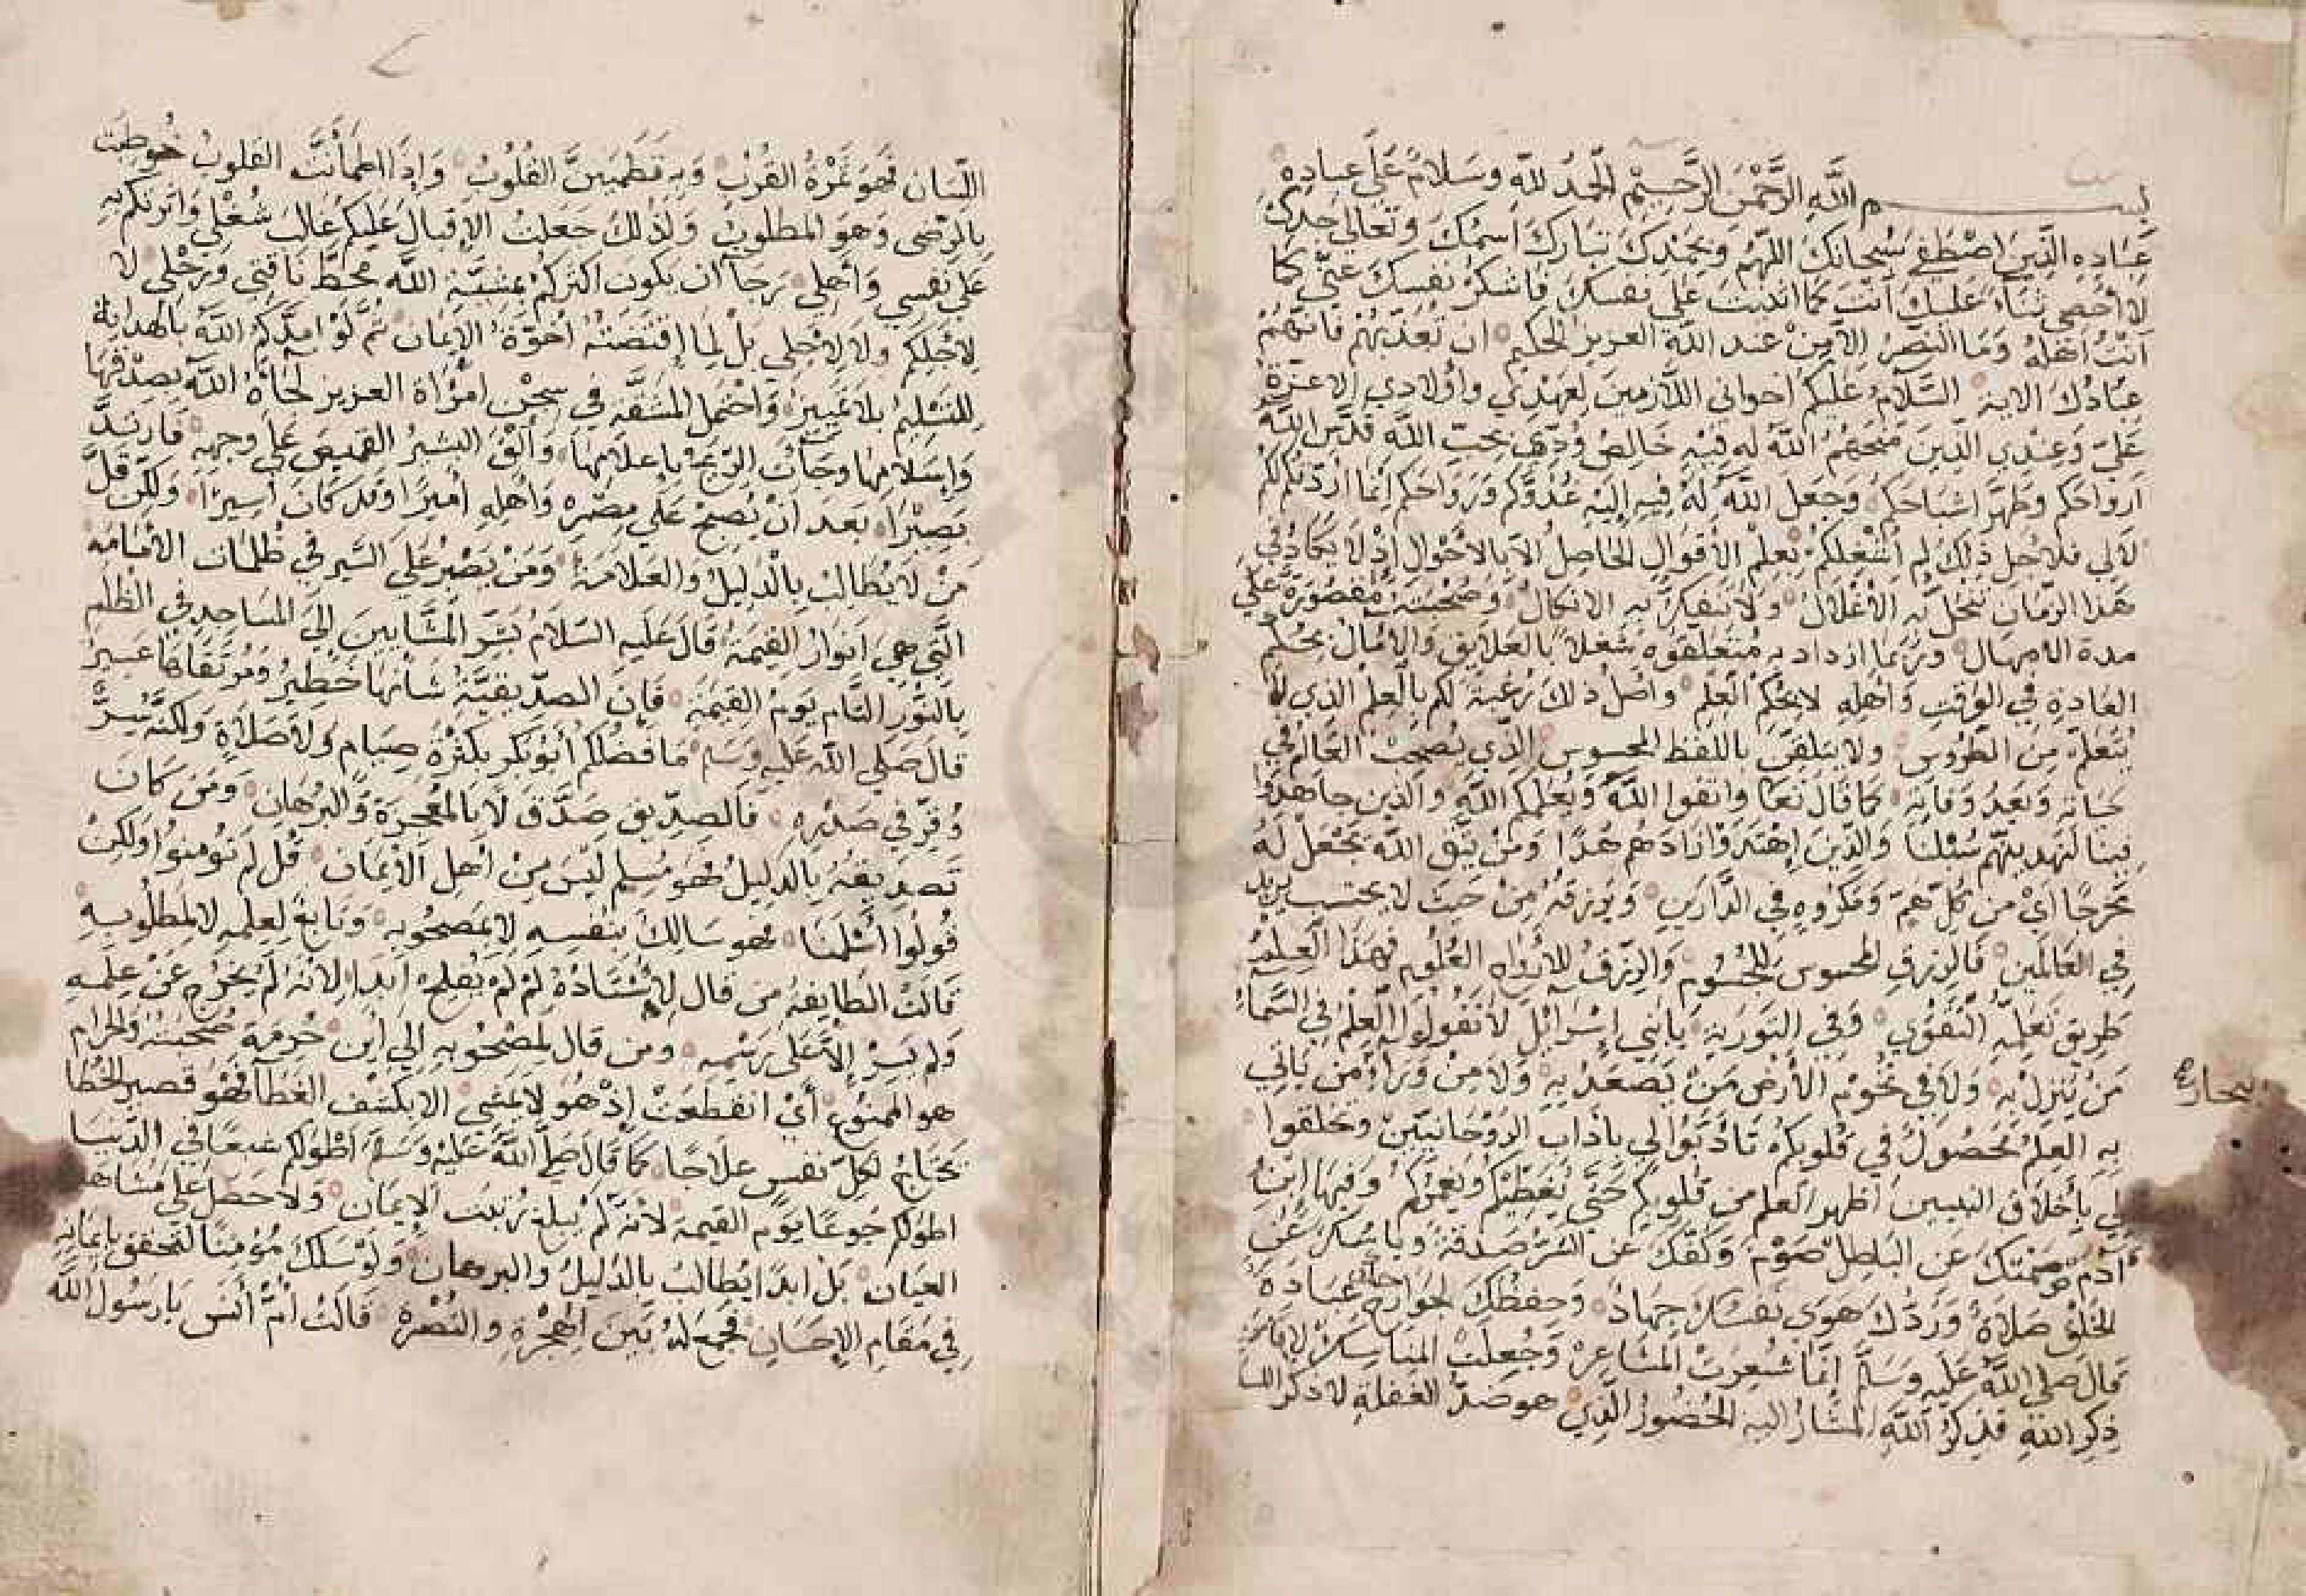 بسم اللَّهِ الرَّحْمَنِ الرَّحِيمِ الْحَمْدُ للهِ وَسَلَامٌ عَلَى عِبَادِهِ
عِبَادِهِ الَّذِينَ اصْطَفَى سُبْحَانَكَ اللَّهُمَّ وَبِحَمْدِكَ تَبَارَكَ اسْمُكَ وَتَعَالَى جَدُّكَ
لَا أُحْصِي ثَنَاءً عَلَيْكَ أَنْتَ كَمَا أَثْنَيْتَ عَلَى نَفْسِكَ فَاشْكُرْ نَفْسَكَ عَنِّي كَمَا
أَنْتَ أَهْلُهُ وَمَا النَّصْرُ إِلَّا مِنْ عِنْدِ اللَّهِ الْعَزِيزِ الْحَكِيمِ إِنْ تُعَذِّبْهُمْ فَإِنَّهُمْ
عِبَادُكَ الاية السَّلَامُ عَلَيْكُمْ اخواني اللَّازِمِينَ لِعَهْدِي وَأَوْلَادِي الاعزة
عَلَيَّ وَعِنْدِي الَّذِينَ مَنَحَهُمُ اللَّهُ خَالِصَ بحبّ اللَّه قَدَّسَ اللَّهُ
أَرْوَاحَكُم وَطَهَّرَ اشْبَاحَكُمْ وَجَعَلَ اللَّهُ لَهُ فِيهِ إِلَيْهِ غُدُوَّكُمْ وَرَوَاحَكُم إِنَّمَا أَرَدْتُكُمْ لَكُمْ
لَالِي فَلِأَجْلِ ذَلِكَ لَمْ أَشْغَلْكُمْ بِعِلْمِ الْأَقْوَالِ الْحَاصِلُ إِلَّا بِالْأَحْوَالِ إِذْ لَا يَكَادُ فِي
هَذَا الزَّمَانِ تَنْحَلُّ بِهِ الْأَغْلَالُ وَلَا تَنْفَكُّ بِهِ الانكَالُ وَصُحْبَتُهُ مَقْصُورَةٌ عَلَى
مدة الامهال وَرُبَّمَا ازداد بِهِ مُتَعَلِّقُوهُ شُغْلًا بِالْعَلَايِقِ وَالامَالِ بِحُكْمِ
الْعَادَةِ فِي الْوَقْتِ وَأَهْلِهِ لَا بِحُكْمِ الْعِلْمِ وَأَصْلُ ذَلِكَ رَغْبَةً لَكُمْ بِالْعِلْمِ الَّذِي لَا
يُتَعَلَّمُ مِنَ الطُّرُوسِ وَلَا يتلقى بِاللَّفْظِ الْمَحْسُوسِ الَّذِي يُصْحَبُ الْعَالِمَ فِي
حَيَاتِهِ وَبَعْدَ وَفَاتِهِ كَمَا قَالَ تَعَالَى وَاتَّقُوا اللَّهَ وَيُعَلِّمُكُمُ اللَّهُ وَالَّذِينَ جَاهَدُوا
فِينَا لَنَهْدِيَنَّهُمْ سُبُلَنَا وَالَّذِينَ اهْتَدَوْا زَادَهُمْ هُدًا وَمَنْ يَتَّقِ اللَّهَ يَجْعَلْ لَهُ
مَخْرَجًا أَيْ مِنْ كُلِّ هَمٍّ وَمَكْرُوهٍ فِي الدَّارَيْنِ وَيَرْزُقْهُ مِنْ حَيْثُ لَا يَحْتَسِبْ يريد
فِي الْعَالَمِينَ فَالرِّزْقُ الْمَحْسُوسُ لِلْجُسُومِ وَالرِّزْقُ لِلْأَرْوَاحِ الْعُلُومِ فَهَذَا الْعِلْمُ
طَرِيقُ تَعَلُّمِهِ التَّقْوَى وَفِي التَّوْرَيةِ يَا بَنِي إِسْرَائِيلَ لَا تَقُولُوا الْعِلْمُ فِي السَّمَاءِ
مَنْ يَنْزِلُ بِهِ وَلَا فِي تُخُومِ الْأَرْضِ مَنْ يَصْعَدُ بِهِ وَلَا مِنْ وَرَاءِ مَنْ يَاتِي
البحار
بِهِ الْعِلْمُ مَحْصُولٌ فِي قُلُوبِكُمْ تَأَدَّبُوا لِي بِآدَابِ الرُّوحَانِيِّينَ وَتَخَلَّقُوا
لِي بِأَخْلَاقِ النَّبِيِّينَ أُظْهِرُ الْعِلْمَ مِنْ قُلُوبِكُمْ حَتَّى يُغَطِّيكُمْ وَيَعُمَّكُمْ وَفِيهَا ابْنَ
آدَمَ صَمْتُكَ عَنِ الْبَاطِلِ صَوْمٌ وَكَفُّكَ عَنِ الشَّرِّ صَدَقَةٌ وَيَاسُكَ عَنِ
الْخَلْقِ صَلَاةٌ وَرَدُّكَ هَوَى نَفْسِكَ جِهَادٌ وَحِفْظُكَ لِجَوَارِحِكَ عِبَادَةٌ
قَالَ صَلَّى اللَّهُ عَلَيْهِ وَسَلَّمَ إِنَّمَا شُعِرَتِ الْمَشَاعِرُ وَجُعِلَتِ الْمَنَاسِكُ لِإِقَامَةِ
ذِكْرِ اللَّهِ فَذِكْرُ اللَّهِ الْمُشَارُ إِلَيْهِ الْحُضُورُ الَّذِي هُوَ ضِدُّ الْغَفْلَةِ لَا ذِكْرُ اللسا
اللِّسَانِ فَهُوَ ثَمْرَةُ الْقُرْبِ وَبِهِ تَطْمَئِنُّ الْقُلُوبُ وَإِذَا اطْمَأَنَّتِ الْقُلُوبُ خُوطِبَتْ
بِالرِّضَى وَهُوَ الْمَطْلُوبُ وَلِذَلِكَ جَعَلْتُ الْإِقْبَالَ عَلَيْكُمْ غَالِبَ شُغْلِي وَآثَرْتُكُمْ بِهِ
عَلَى نَفْسِي وَأَهْلِي رَجَاءَ أَنْ يَكُونَ أَكْثَرُكُمْ بِمَشِيَّةِ اللَّهِ مَحَطَّ نَاقَتِي وَرَحْلِي لَا
لِأَجْلِكُمْ وَلَا لِأَجْلِي بَلْ لِمَا اقْتَضَتْهُ أُخُوَّةُ الْإِيمَانِ ثُمَّ لَوْ أَمَدَّكُمُ اللَّهُ بِالْهِدَايَةِ
لِلتَّسْلِيمِ بِلَا تَمْيِيزٍ وَاحْتَمَلَ الْمَشَقَّةَ فِي سِجْنِ امْرَأَةِ الْعَزِيزِ لَجَاءَهُ اللَّهُ بِصِدْقِهَا
وَإِسْلَامِهَا وَجَاءَتِ الرِّيحُ بِإِعْلَامِهَا وَأَلْقَى الْبَشِيرُ الْقَمِيصَ عَلَى وَجْهِهِ فَارْتَدَّ
بَصِيرًا بَعْدَ أَنْ يُصْبِحَ عَلَى مِصْرِهِ وَأَهْلِهِ أَمِيرًا وَقَدْ كَانَ أَسِيرًا وَلَكِنْ قَلَّ
مَنْ لَا يُطَالِبُ بِالدَّلِيلِ وَالْعَلَامَةِ وَمَنْ يَصْبِرُ عَلَى السَّيْرِ فِي ظُلُمَاتِ الْإِقَامَةِ
الَّتِي هِيَ أَنْوَارُ الْقِيَمَةِ قَالَ عَلَيْهِ السَّلَامُ بَشِّرِ الْمَشَّايِينَ إِلَى الْمَسَاجِدِ فِي الظُّلَمِ
بِالنُّورِ التَّامِّ يَوْمَ الْقِيَمَةِ فَإِنَّ الصِّدِّيقِيَّةَ شَأْنُهَا خَطِيرٌ وَمُرْتَقَاهَا عَسِيرٌ
قَالَ صَلَّى اللَّهُ عَلَيْهِ وَسَلَّمَ مَا فَضَلَكُمْ أَبُو بَكْرٍ بِكَثْرَةِ صِيَامٍ وَلَا صَلَاةٍ وَلَكِنَّهُ بِسِرٍّ
وَقَرَ فِي صَدْرِهِ فَالصِّدِّيقُ صَدَّقَ لَا بِالْمُعْجِزَةِ وَالْبُرْهَانِ وَمَنْ كَانَ
تَصْدِيقُهُ بِالدَّلِيلِ فَهُوَ مُسْلِمٌ لَيْسَ مِنْ أَهْلِ الْإِيمَانِ قُلْ لَمْ تُؤْمِنُوا وَلَكِنْ
قُولُوا أَسْلَمْنَا فَهُوَ سَالِكٌ بِنَفْسِهِ لَا بِمَصْحُوبِهِ وَتَابِعٌ لِعِلْمِهِ لَا لِمَطْلُوبِهِ
قَالَتِ الطَّايِفَةُ مَنْ قَالَ لِأُسْتَاذِهِ لِمَ لَمْ يُفْلِحْ أَبَدًا لِأَنَّهُ لَمْ يَخْرُجْ عَنْ عِلْمِهِ
وَلَمْ يَسِرْ إِلَّا عَلَى رَسْمِهِ وَمَنْ قَالَ لِمَصْحُوبِهِ إِلَى أَيْنَ حُرِمَةَ صُحْبَتُهُ وَالْحَرَامُ
هُوَ الْمَمْنُوعُ أَيْ انْقَطَعَتْ إِذْ هُوَ لَا يَمْشِي إِلَّا بِكَشْفِ الْغِطَاءِ فَهُوَ قَصِيرُ الْخُطَا
يَحْتَاجُ لِكُلِّ نَفَسٍ عِلَاجًا كَمَا قَالَ صَلَّى اللَّهُ عَلَيْهِ وَسَلَّمَ أَطْوَلُكُمْ شِبَعًا فِي الدُّنْيَا
أَطْوَلُكُمْ جُوعًا يَوْمَ الْقِيَمَةِ لِأَنَّهُ لَمْ يَبْلُغْ رُتْبَةَ الْإِيمَانِ وَلَا حَصَلَ عَلَى مُشَاهَدَ
الْعِيَانِ بَلْ أَبَدًا يُطَالِبُ بِالدَّلِيلِ وَالْبُرْهَانِ وَلَوْ سَلَكَ مُؤْمِنًا لَتَحَقَّقَ بِإِيمَانِهِ
فِي مَقَامِ الْإِحْسَانِ فَجَمَعَ لَهُ بَيْنَ الْهِجْرَةِ وَالنُّصْرَةِ قَالَتْ أُمُّ أَنَسٍ يَا رَسُولَ اللَّهِ